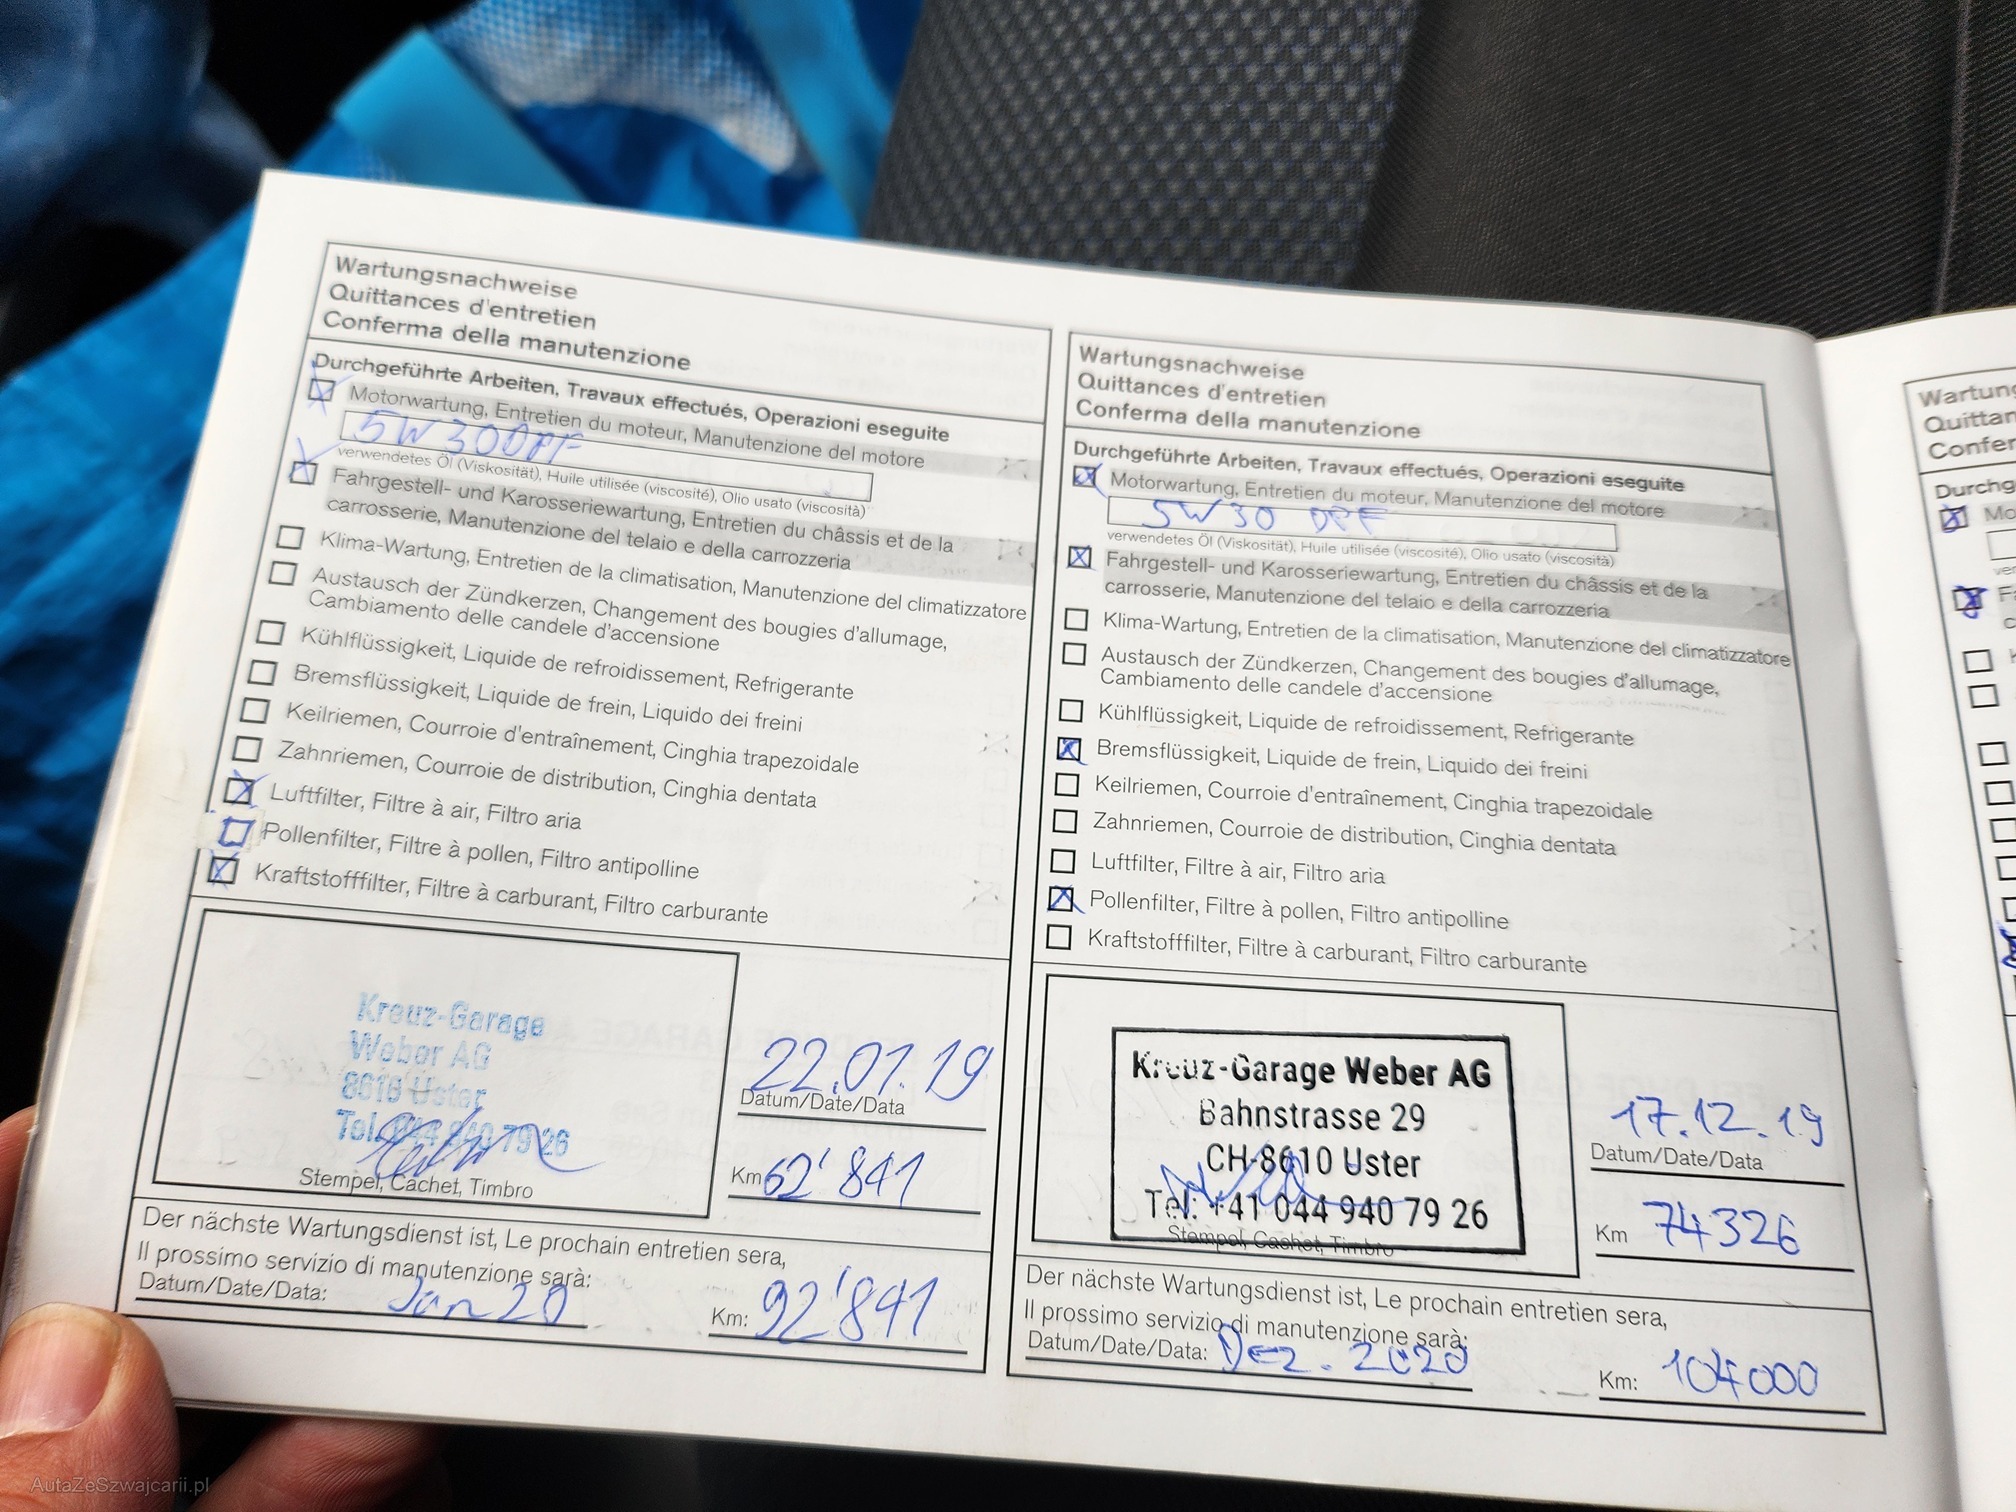 Wartungsnachweise
Quittances d'entretien
Conferma della manutenzione
Durchgeführte Arbeiten, Travaux effectués, Operazioni eseguite
Motorwartung, Entretien du moteur, Manutenzione del motore
5W30 DPF
verwendetes Öl (Viskosität), Huile utilisée (viscosité), Olio usato (viscosità)
Fahrgestell- und Karosseriewartung, Entretien du châssis et de la
carrosserie, Manutenzione del telaio e della carrozzeria
Klima-Wartung, Entretien de la climatisation, Manutenzione del climatizzatore
Austausch der Zündkerzen, Changement des bougies d'allumage,
Cambiamento delle candele d'accensione
Kühlflüssigkeit, Liquide de refroidissement, Refrigerante
Bremsflüssigkeit, Liquide de frein, Liquido dei freini
Keilriemen, Courroie d'entraînement, Cinghia trapezoidale
Zahnriemen, Courroie de distribution, Cinghia dentata
Luftfilter, Filtre à air, Filtro aria
Pollenfilter, Filtre à pollen, Filtro antipolline
Kraftstofffilter, Filtre à carburant, Filtro carburante
Kreuz-Garage
Weber AG
8610 Uster
Tel. 044 940 79 26
Stempel, Cachet, Timbro
22.01.19
Datum/Date/Data
Km 62'841
Der nächste Wartungsdienst ist, Le prochain entretien sera,
Il prossimo servizio di manutenzione sarà:
Datum/Date/Data: Jan 20
Km: 92'841
Wartungsnachweise
Quittances d'entretien
Conferma della manutenzione
Durchgeführte Arbeiten, Travaux effectués, Operazioni eseguite
Motorwartung, Entretien du moteur, Manutenzione del motore
5W30 DPF
verwendetes Öl (Viskosität), Huile utilisée (viscosité), Olio usato (viscosità)
Fahrgestell- und Karosseriewartung, Entretien du châssis et de la
carrosserie, Manutenzione del telaio e della carrozzeria
Klima-Wartung, Entretien de la climatisation, Manutenzione del climatizzatore
Austausch der Zündkerzen, Changement des bougies d'allumage,
Cambiamento delle candele d'accensione
Kühlflüssigkeit, Liquide de refroidissement, Refrigerante
Bremsflüssigkeit, Liquide de frein, Liquido dei freini
Keilriemen, Courroie d'entraînement, Cinghia trapezoidale
Zahnriemen, Courroie de distribution, Cinghia dentata
Luftfilter, Filtre à air, Filtro aria
Pollenfilter, Filtre à pollen, Filtro antipolline
Kraftstofffilter, Filtre à carburant, Filtro carburante
Kreuz-Garage Weber AG
Bahnstrasse 29
CH-8610 Uster
Tel: +41 044 940 79 26
Stempel, Cachet, Timbro
17.12.19
Datum/Date/Data
Km 74326
Der nächste Wartungsdienst ist, Le prochain entretien sera,
Il prossimo servizio di manutenzione sarà:
Datum/Date/Data: Dez. 2020
Km: 104000
AutaZeSzwajcarii.pl